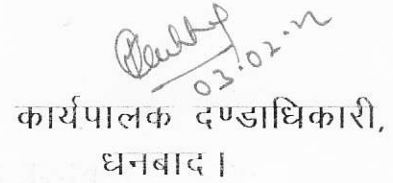 03.02.22
कार्यपालक दण्डाधिकारी,
धनबाद।